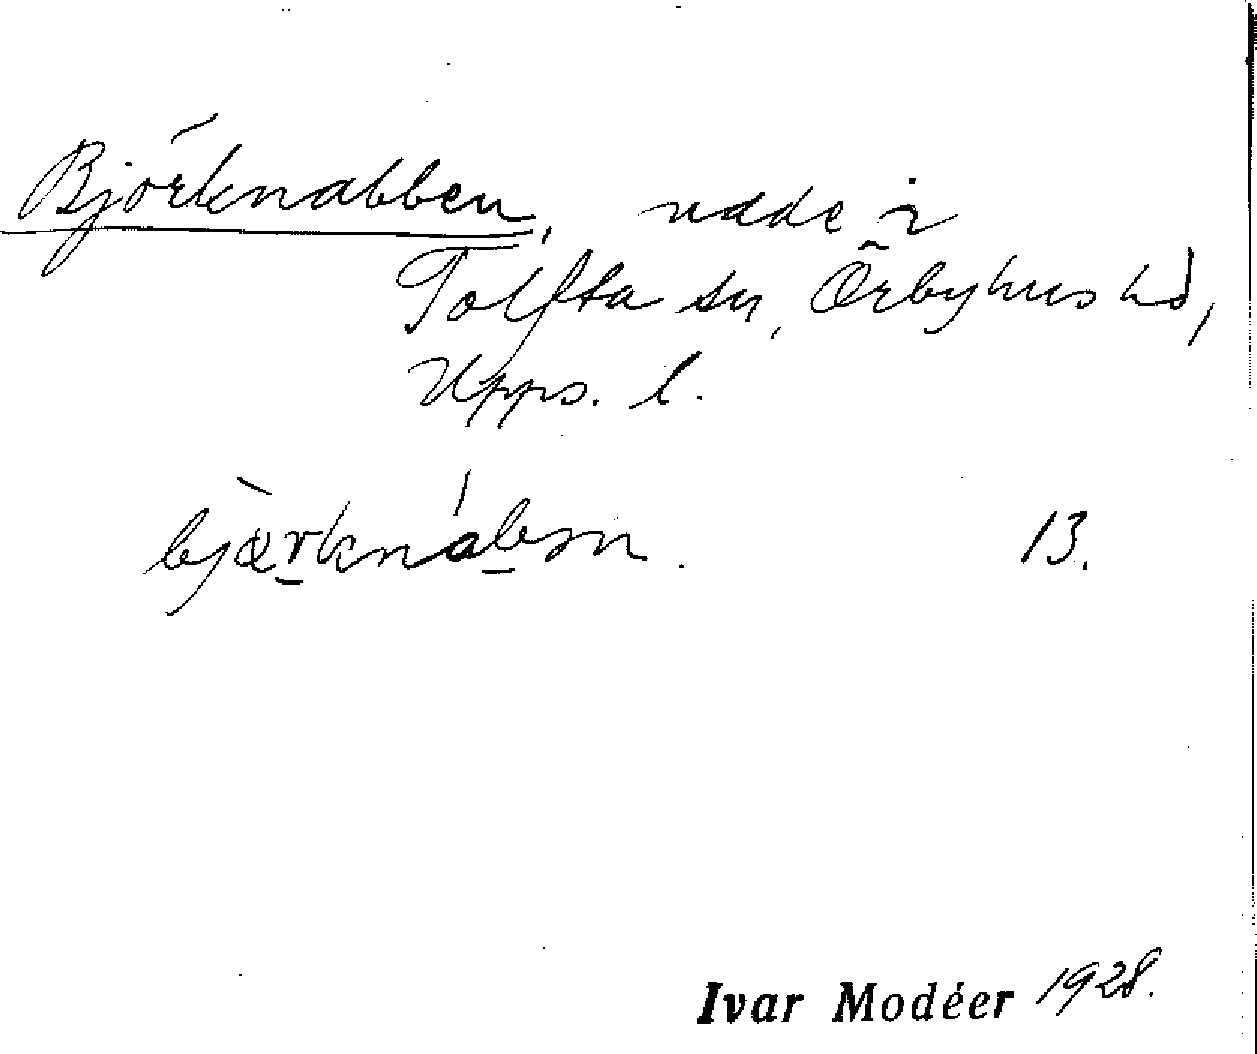 Björknabben, udde i
Tolfta sn, Örbyhus hd,
Upps. l.
bjærknabən. 13.
Ivar Modéer 1928.